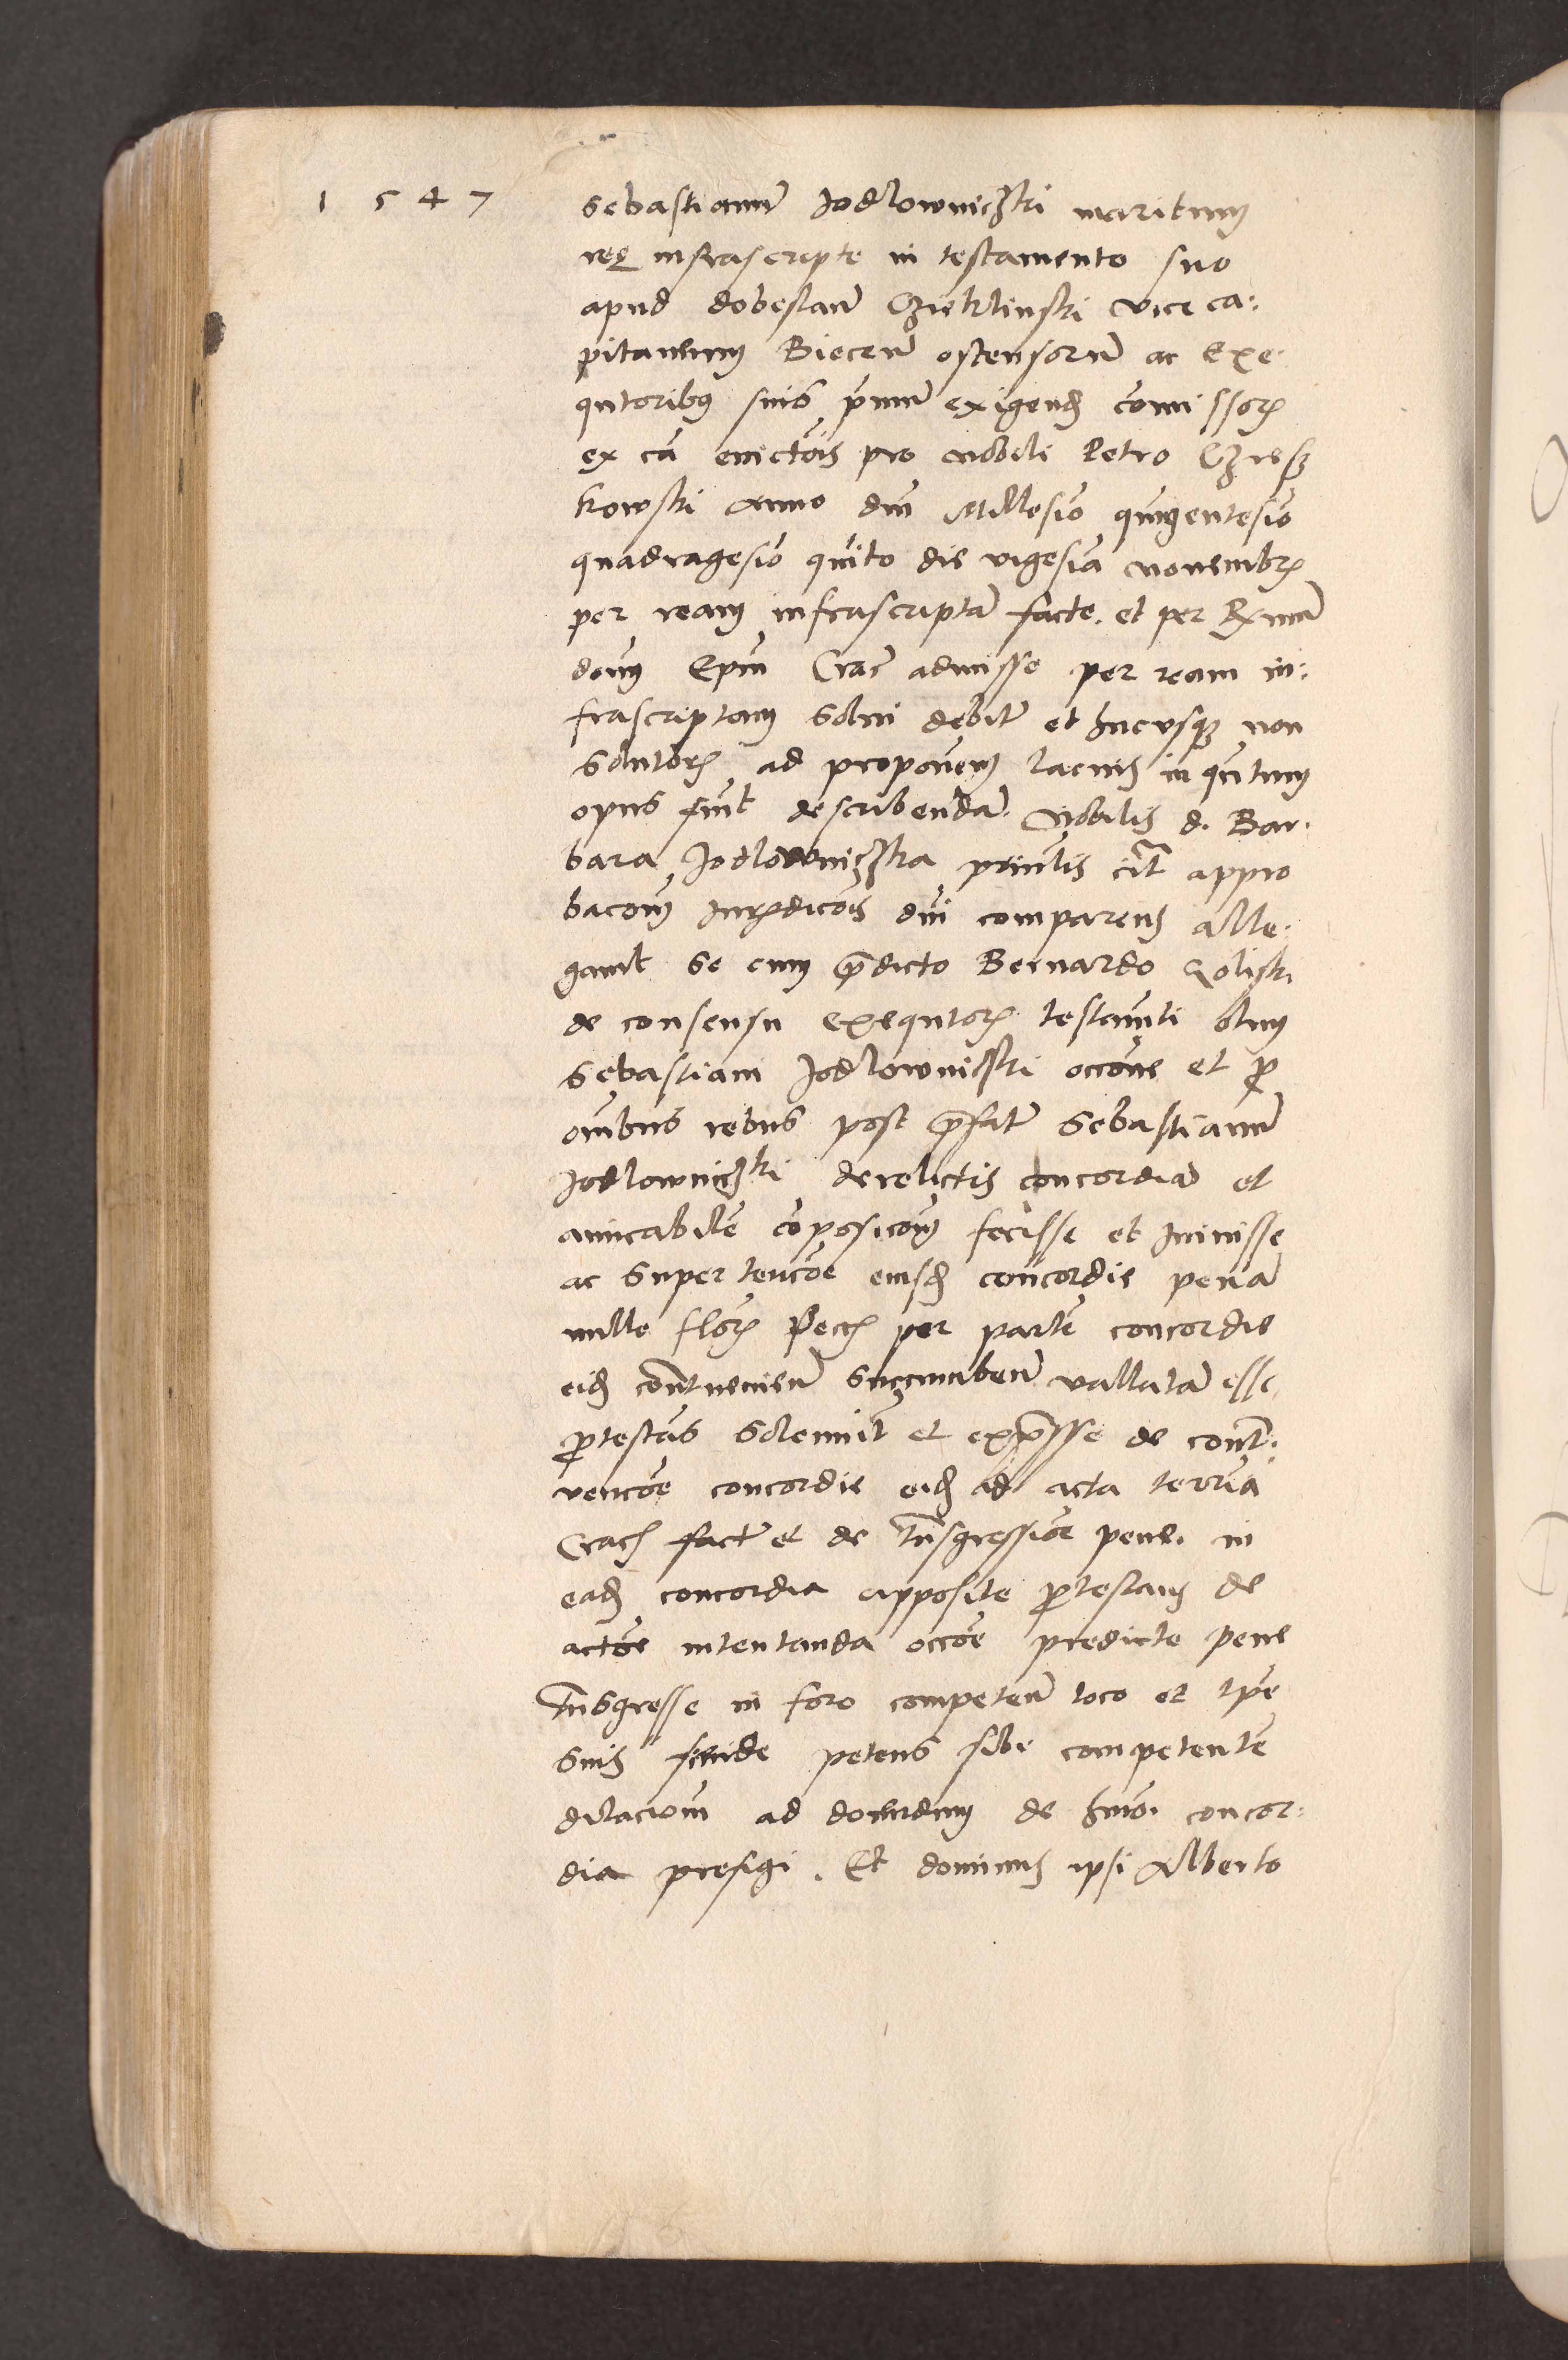 1547
Sebastianu Jodlowniczski maritum
ree infrascripte in testamento suo
apud dobeslau Czieklinski vice ca:
pitaneum Biecen ostensorum ac exe-
qutoribus suis primu exigend comissor
ex ca evictois pro Nobili Petro
kowski Anno dni Millesio quingentesio
quadragesio quito die vigesia Novembr
per ream infrascripta facte. et per Rx
donu Epm Crac admisse per ream in:
frascriptam Solui debit et hucusq non
Solutor ad proponem lacius in qutum
opus fuit describenda. Nobilis d. Bar-
bara Jodlowniczska prnlis cit appro
bacom Jurdicois dni comparens alle-
gauit Se cum predicto Bernardo
de consensu exequtor testamti olim
Sebastiani Jodlowniczski occone et pro
omibus rebus post prefat Sebastianu
Jodlowniczki derelictis concordia et
amicabile coposicom fecisse et Jniuisse
ac Super tencoe eiusd concordie pena
mille flor Pecc per parte concordie
eid contrueniens Succumben vallata esse
protestas Solemnit et expresse de contra-
vencoe concordie eid ad acta terria
Crac fact et de transgressioe pene. in
ead concordia apposite protestans de
actoe intentanda occoe predicte pene
transgresse in foro competen loco et tpe
Suis petens sibi competente
dilaciom ad docendum de humoi concor-
dia prefigi. Et dominus ipsi Alberto